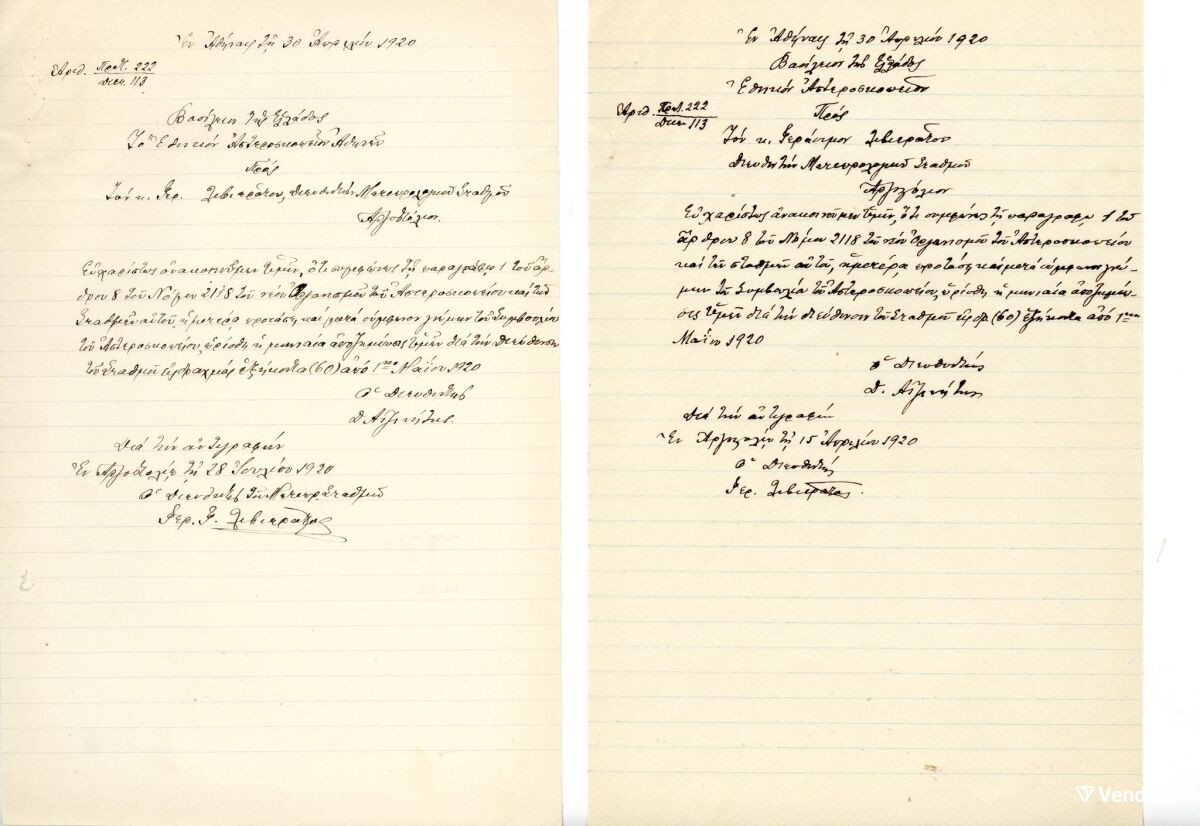 Ἐν Ἀθήναις τῇ 30 Ἀπριλίου 1920
Ἀριθ. Πρωτ. 222
Διεκ. 113
Βασίλειον τῆς Ἑλλάδος
Τὸ Ἐθνικὸν Ἀστεροσκοπεῖον Ἀθηνῶν
Πρὸς
Τὸν κ. Γερ. Λιβιεράτον, Διευθυντὴν Μετεωρολογικοῦ Σταθμοῦ
Ἀργοστόλιον.
Εὐχαρίστως ἀνακοινοῦμεν ὑμῖν, ὅτι συμφώνως τῇ παραγράφῳ 1 τοῦ ἄρ-
θρου 8 τοῦ Νόμου 2118 τοῦ νέου Ὀργανισμοῦ τοῦ Ἀστεροσκοπείου καὶ τῶν
Σταθμῶν αὐτοῦ, ἡμετέρᾳ προτάσει καὶ μετὰ σύμφωνον γνώμην τοῦ Συμβουλίου
τοῦ Ἀστεροσκοπείου, ὡρίσθη ἡ μηνιαία ἀποζημίωσις ὑμῶν διὰ τὴν διεύθυνσιν
τοῦ Σταθμοῦ εἰς δραχμὰς ἑξήκοντα (60) ἀπὸ 1ης Μαΐου 1920
Ὁ Διευθυντὴς
Δ. Αἰγινήτης.
Διὰ τὴν ἀντιγραφὴν
Ἐν Ἀργοστολίῳ τῇ 28 Ἰουλίου 1920
Ὁ Διευθυντὴς τοῦ Μετεωρ. Σταθμοῦ
Γερ. Γ. Λιβιεράτος
Ἐν Ἀθήναις τῇ 30 Ἀπριλίου 1920
Βασίλειον τῆς Ἑλλάδος
Ἐθνικὸν Ἀστεροσκοπεῖον
Ἀριθ. Πρωτ. 222
Διεκ. 113
Πρὸς
Τὸν κ. Γεράσιμον Λιβιεράτον
Διευθυντὴν Μετεωρολογικοῦ Σταθμοῦ
Ἀργοστόλιον
Εὐχαρίστως ἀνακοινοῦμεν ὑμῖν, ὅτι συμφώνως τῇ παραγράφῳ 1 τοῦ
ἄρθρου 8 τοῦ Νόμου 2118 τοῦ νέου Ὀργανισμοῦ τοῦ Ἀστεροσκοπείου
καὶ τῶν σταθμῶν αὐτοῦ, ἡμετέρᾳ προτάσει καὶ μετὰ σύμφωνον γνώ-
μην τοῦ Συμβουλίου τοῦ Ἀστεροσκοπείου, ὡρίσθη ἡ μηνιαία ἀποζημίω-
σις ὑμῶν διὰ τὴν διεύθυνσιν τοῦ Σταθμοῦ εἰς δρ. (60) ἑξήκοντα ἀπὸ 1ης
Μαΐου 1920
Ὁ Διευθυντὴς
Δ. Αἰγινήτης
Διὰ τὴν ἀντιγραφὴν
Ἐν Ἀργοστολίῳ τῇ 15 Ἀπριλίου 1920
Ὁ Διευθυντὴς
Γερ. Λιβιεράτος.